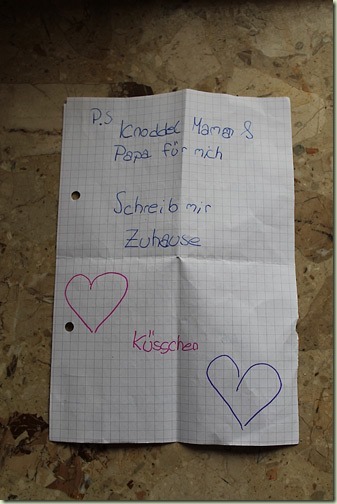 P.S
Knoddel Mama &
Papa für mich
Schreib mir
Zuhause
Küsschen